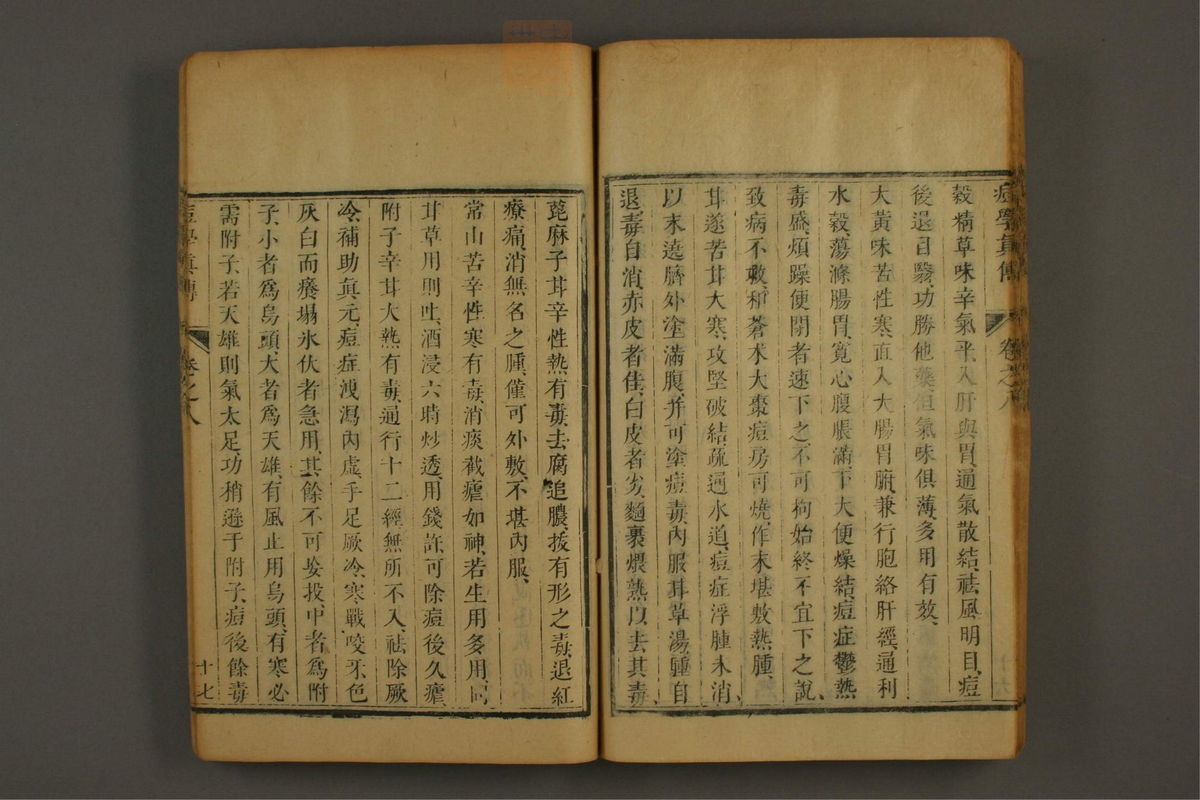 痘學真傳 卷之八
穀精草味辛氣平、入肝與胃、通氣散結、祛風明目、痘
後退目翳、功勝他藥、但氣味俱薄、多用有效、
大黃味苦性寒、直入大腸胃脈、兼行胞絡肝經、通利
水穀、蕩滌腸胃、寬心腹脹滿、下大便燥結、痘症鬱熱
毒盛、煩躁便閉者、速下之、不可拘始終不宜下之說、
致病不救、和蒼朮大棗、痘房可燒、作末堪敷熱腫、
甘遂苦甘大寒、攻堅破結、疏通水道、痘症浮腫未消、
以末遶臍外塗滿腹、并可塗痘毒、內服甘草湯、腫自
退、毒自消、赤皮者佳、白皮者劣、麵裹煨熟、以去其毒、
蓖麻子甘辛性熱有毒、去腐追膿、拔有形之毒、退紅
療痛、消無名之腫、僅可外敷、不堪內服、
常山苦辛性寒有毒、消痰截瘧如神、若生用多用、同
甘草用則吐、酒浸六時炒透、用錢許、可除痘後久瘧、
附子辛甘大熱有毒、通行十二經、無所不入、祛除厥
冷、補助真元、痘症洩瀉內虛、手足厥冷、寒戰咬牙、色
灰白而癢塌氷伏者急用、其餘不可妄投、中者為附
子、小者為烏頭、大者為天雄、有風止用烏頭、有寒必
需附子、若天雄則氣太足、功稍遜于附子、痘後餘毒
痘學真傳 卷之八 十七